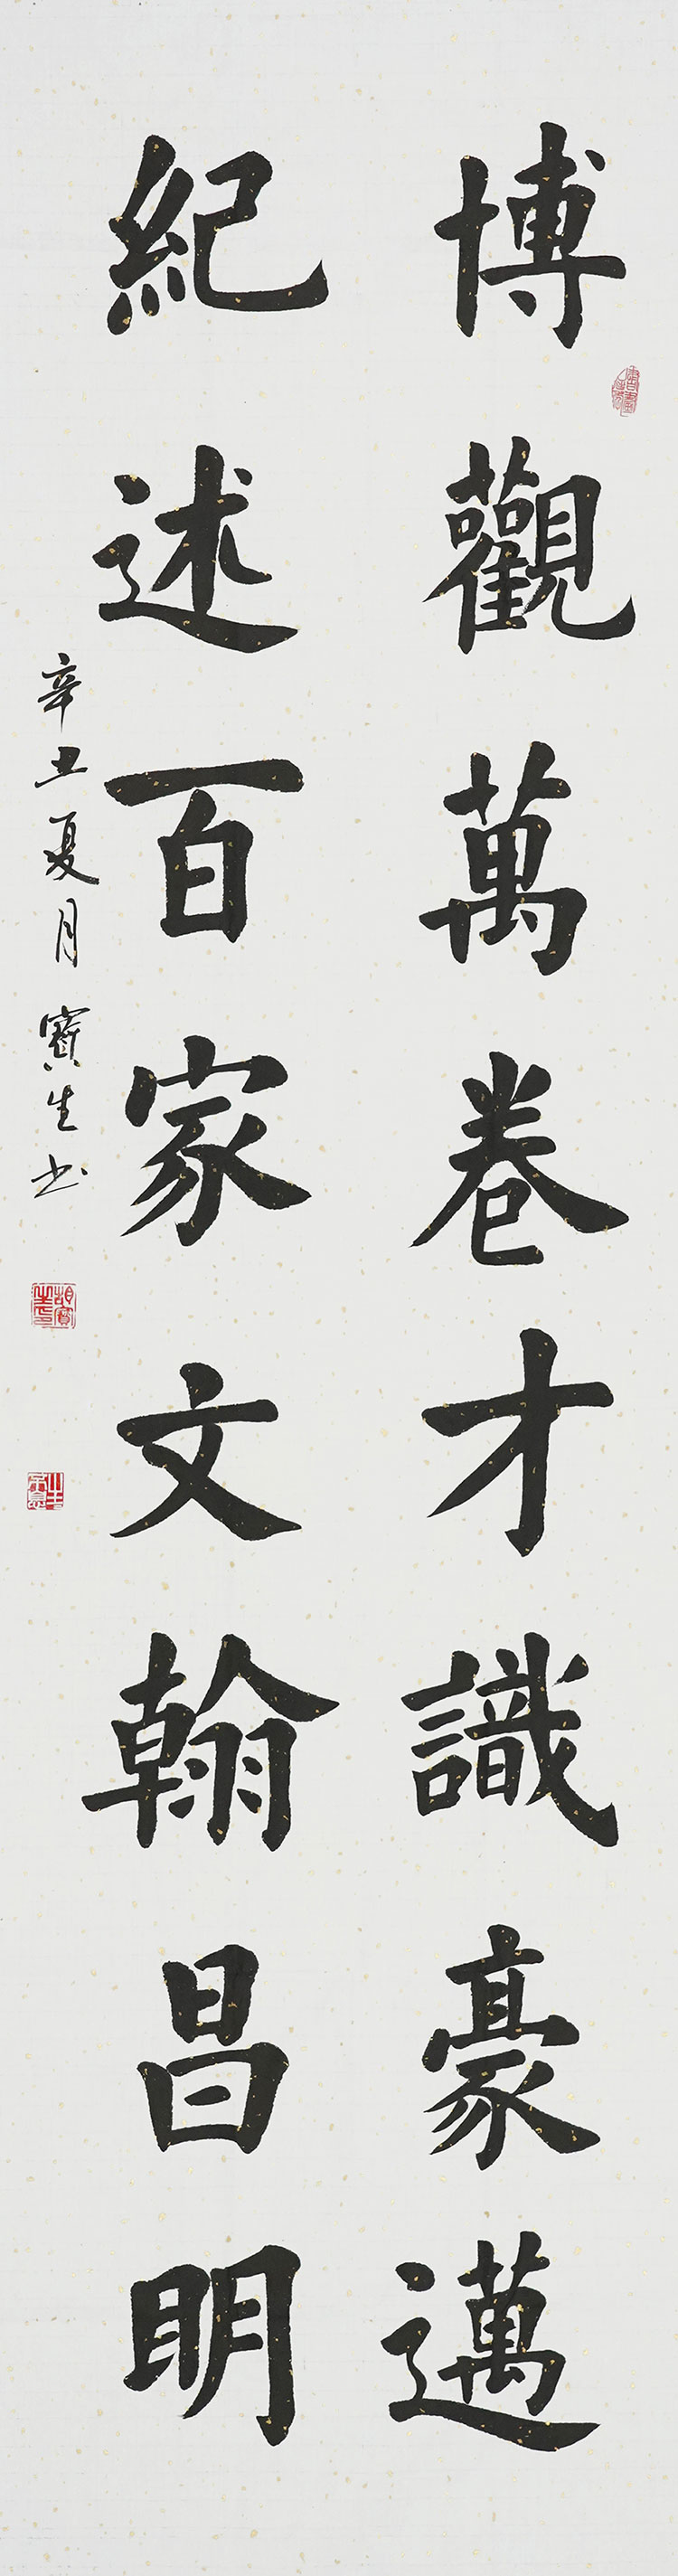 博觀萬卷才識豪邁
紀述百家文翰昌明
辛丑夏月寶生書
胡寶生印